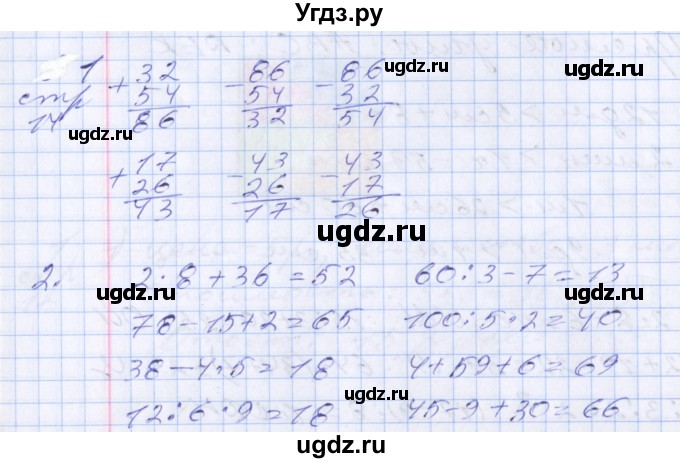 Угдз.ру
1
стр 14
+ 32 - 86 - 86
54 54 32
86 32 54
+ 17 - 43 - 43
26 26 17
43 17 26
2. 2·8+36=52 60:3-7=13
78-15+2=65 100:5·2=40
38-4·5=18 4+59+6=69
12:6·9=18 45-9+30=66
ugdz.ru
ugdz.ru
ugdz.ru
ugdz.ru
ugdz.ru
ugdz.ru
ugdz.ru
ugdz.ru
ugdz.ru
ugdz.ru
ugdz.ru